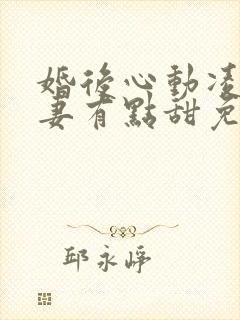 婚後心動凌
妻有點甜免
邱永崢